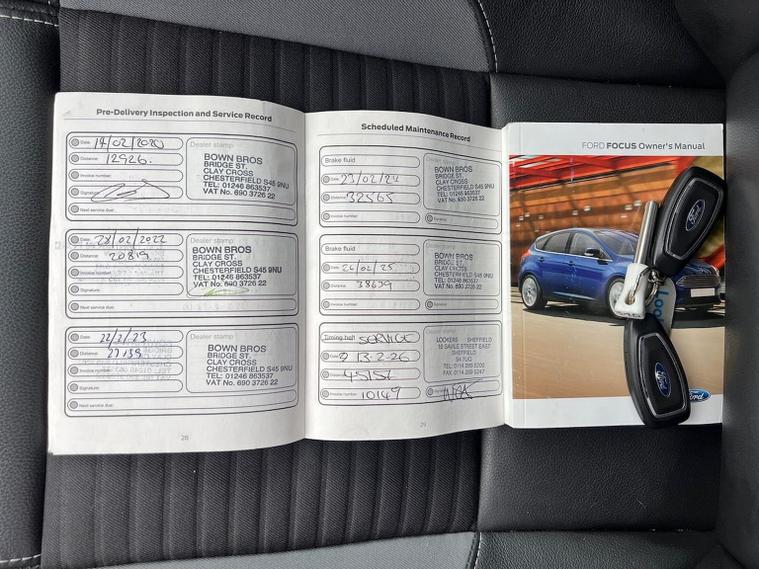 Pre-Delivery Inspection and Service Record
Date: 14/02/2020
Distance: 12926.
Invoice number:
Signature:
Next service due:
Dealer stamp
BOWN BROS
BRIDGE ST.
CLAY CROSS
CHESTERFIELD S45 9NU
TEL: 01246 863537
VAT No. 690 3726 22
Date: 28/02/2022
Distance: 20819
Invoice number:
Signature:
Next service due:
Dealer stamp
BOWN BROS
BRIDGE ST.
CLAY CROSS
CHESTERFIELD S45 9NU
TEL: 01246 863537
VAT No. 690 3726 22
Date: 22/2/23
Distance: 27139
Invoice number:
Signature:
Next service due:
Dealer stamp
BOWN BROS
BRIDGE ST.
CLAY CROSS
CHESTERFIELD S45 9NU
TEL: 01246 863537
VAT No. 690 3726 22
28
Scheduled Maintenance Record
Brake fluid
Date: 23/02/24
Distance: 32565
Invoice number:
Dealer stamp
BOWN BROS
BRIDGE ST.
CLAY CROSS
CHESTERFIELD S45 9NU
TEL: 01246 863537
VAT No. 690 3726 22
Signature:
Brake fluid
Date: 26/02/25
Distance:
Invoice number:
Dealer stamp
BOWN BROS
BRIDGE ST.
CLAY CROSS
CHESTERFIELD S45 9NU
TEL: 01246 863537
VAT No. 690 3726 22
Signature:
Timing belt SERVICE
Date: 13-2-26
Distance:
Invoice number: 10149
Dealer stamp
LOOKERS SHEFFIELD
SAVILE STREET EAST
SHEFFIELD
S4 7UQ
29
FORD FOCUS Owner's Manual
Ford
Ford
Ford